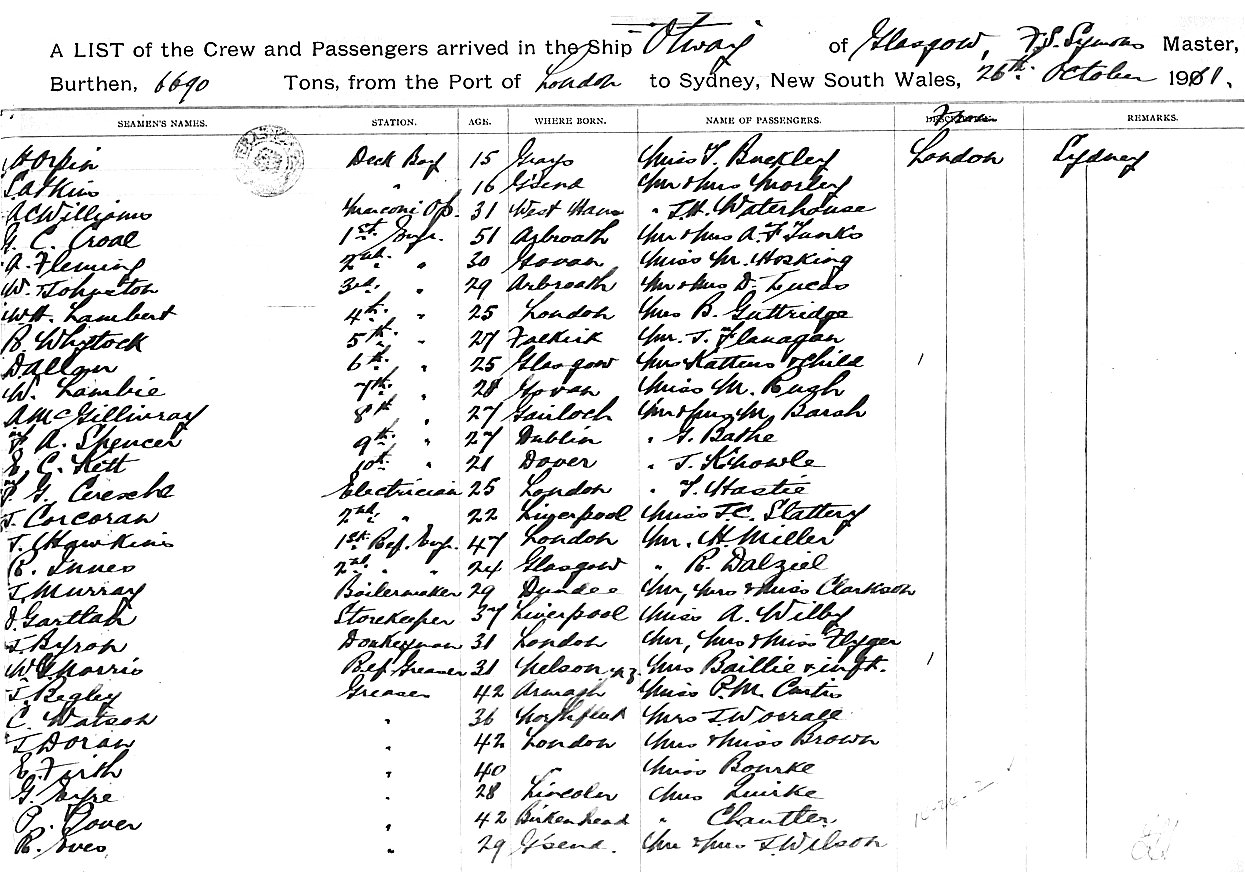 A LIST of the Crew and Passengers arrived in the Ship Otway of Glasgow, F.S. Symons Master,
Burthen, 6690 Tons, from the Port of London to Sydney, New South Wales, 26th October 1911.
SEAMEN'S NAMES. STATION. AGE. WHERE BORN. NAME OF PASSENGERS. REMARKS.
H Orpin Deck Boy 15 Grays Miss F. Buckley London Sydney
S. Atkins " 16 G'send Mr & Mrs Morley
A C Williams Marconi Op. 31 West Ham " T.H. Waterhouse
G. C. Croal 1st Engr. 51 Arbroath Mr & Mrs A. F Tunks
A. Fleming 2nd " 30 Govan Miss M. Hosking
W. Johnston 3rd " 29 Arbroath Mr & Mrs D. Lucas
W H. Lambert 4th " 25 London Mrs B. Guttridge
R. Whytock 5th " 27 Falkirk Mr. J. Flanagan
Dallon 6th " 25 Glasgow Mrs Kattens & Child
W. Lambie 7th " 28 Govan Miss M. Pugh
A McGillivray 8th " 27 Gairloch Mr & Mrs M. Barah
A. Spencer 9th " 27 Dublin " G. Bathe
E. C. Kett 10th " 21 Dover " J. Knowle
G. Ceresche Electrician 25 London " F. Hastie
J. Corcoran 2nd " 22 Liverpool Miss J.C. Slattery
J. Hawkins 1st Ref. Engr. 47 London Mr. H Miller
R. Innes 2nd " " 24 Glasgow " R. Dalziel
J. Murray Boilermaker 29 Dundee Mr, Mrs & Miss Clarkson
J. Gartlah Storekeeper 37 Liverpool Miss A. Wilby
J. Byron Donkeyman 31 London Mr, Mrs & Miss Flyger
W G Morris Ref. Greaser 31 Nelson N.Z. Mrs Baillie & inft.
J. Begley Greaser 42 Armagh Miss P.M. Curtis
C. Watson " 36 Northfleet Mrs J. Worrall
J. Doran " 42 London Mrs & Miss Brown
E. Firth " 40 " Miss Bourke
G. Eyre " 28 Lincoln Mrs Quirke
P. Glover " 42 Birkenhead " Chantler
R. Eves " 29 G'send. Mr & Mrs J. Wilson